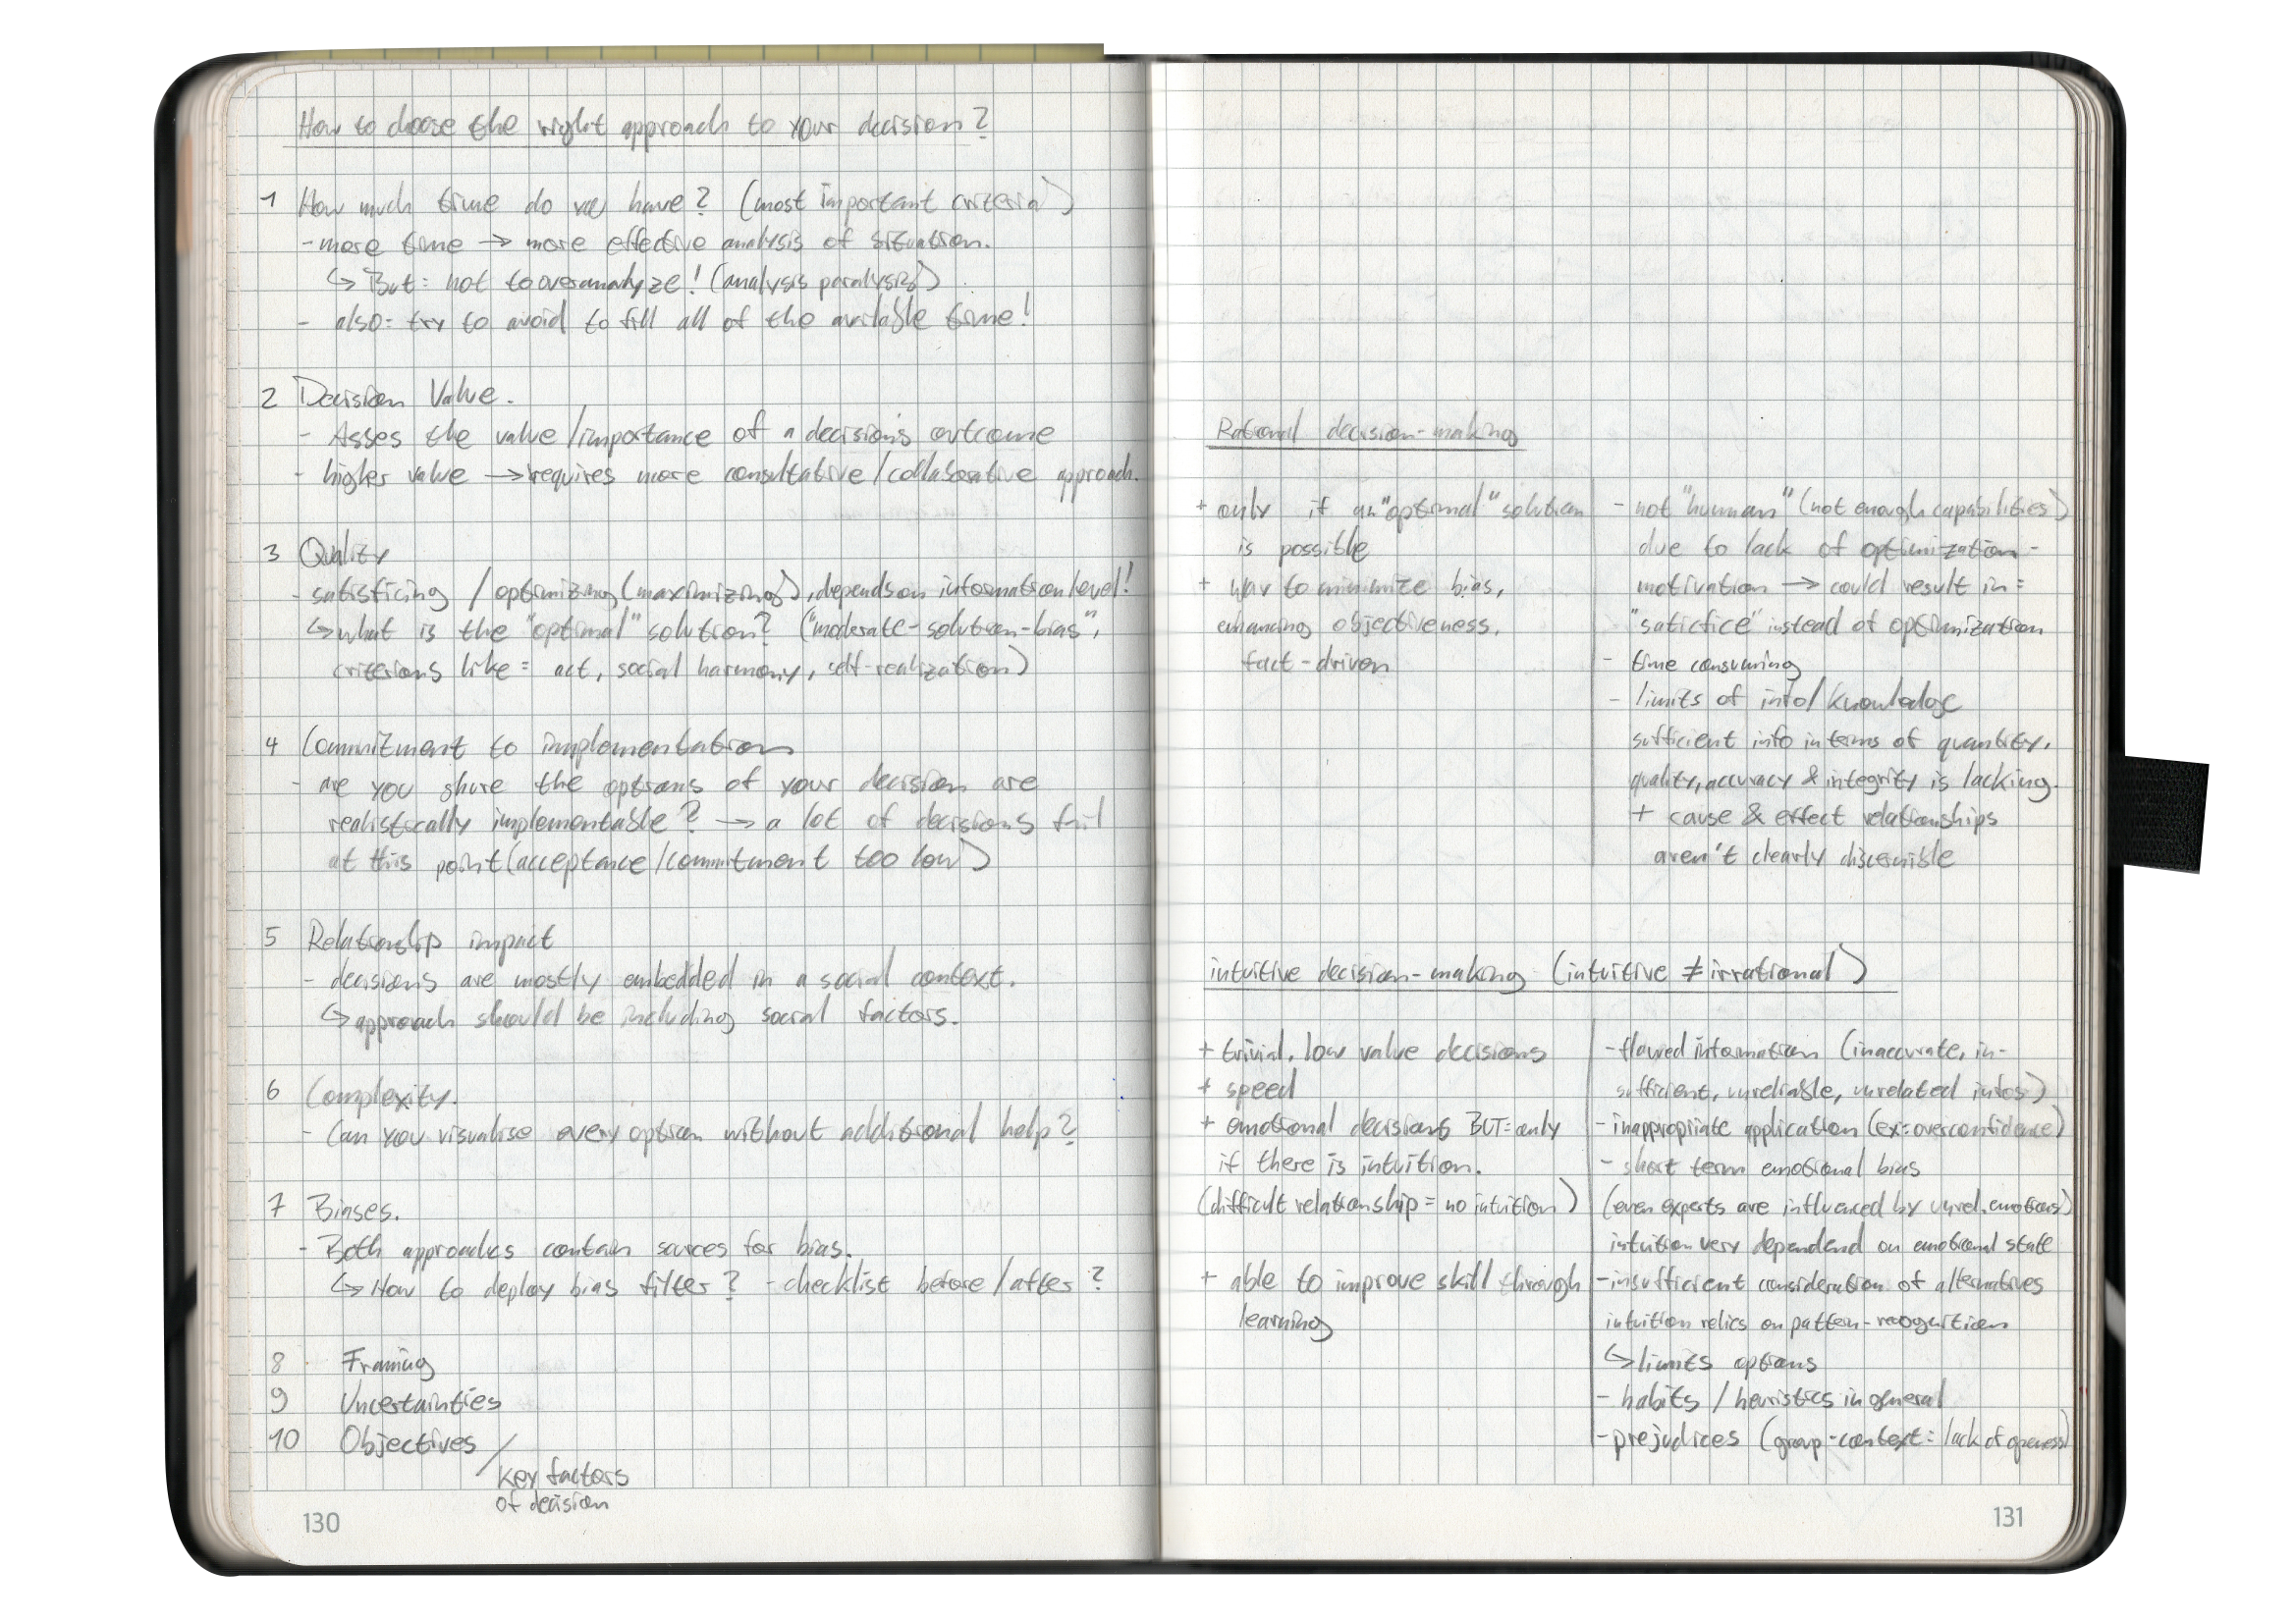 How to choose the right approach to your decision?
1 How much time do we have? (most important criteria)
- more time → more effective analysis of situation.
↳ But: not to overanalyze! (analysis paralysis)
- also: try to avoid to fill all of the available time!
2 Decision Value.
- Asses the value/importance of a decisions outcome
- higher value → requires more consultative/collaborative approach.
3 Quality
- satisficing / optimizing (maximizing), depends on information level!
↳ what is the "optimal" solution? ("moderate-solution-bias",
criterions like: act, social harmony, self-realization)
4 Commitment to implementation
- are you shure the options of your decision are
realistically implementable? → a lot of decisions fail
at this point (acceptance/commitment too low)
5 Relationship impact
- decisions are mostly embedded in a social context.
↳ approach should be including social factors.
6 Complexity.
- Can you visualise every option without additional help?
7 Biases.
- Both approaches contain sources for bias.
↳ How to deploy bias filter? - checklist before/after?
8 Framing
9 Uncertainties
10 Objectives /
key factors
of decision
130
Rational decision-making
+ only if an "optimal" solution
is possible
+ way to minimize bias,
enhancing objectiveness,
fact-driven
- not "human" (not enough capabilities)
due to lack of optimization-
motivation → could result in:
"saticfice" instead of optimization
- time consuming
- limits of info/knowledge
sufficient info in terms of quantity,
quality, accuracy & integrity is lacking.
+ cause & effect relationships
aren't clearly discernible
intuitive decision-making (intuitive ≠ irrational)
+ trivial, low value decisions
+ speed
+ emotional decisions BUT: only
if there is intuition.
(difficult relationship = no intuition)
+ able to improve skill through
learning
- flawed information (inaccurate, in-
sufficient, unreliable, unrelated infos)
- inappropriate application (ex: overconfidence)
- short term emotional bias
(even experts are influenced by unrel. emotions)
intuition very dependend on emotional state
- insufficient consideration of alternatives
intuition relies on pattern-recognition
↳ limits options
- habits / heuristics in general
- prejudices (group-context: lack of openess)
131